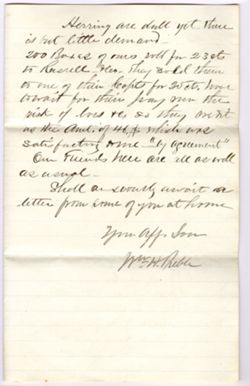 Herring are dull yet there
is but little demand
200 Boxes of ours sold for 23 cts
to Russell & Co. they sold them
to one of their
to wait for their pay run the
risk of loss &c, as they
as the Amt. of which was
satisfactory to me "by agreement"
Our Friends here are all as well
as usual
I shall anxiously await a
letter from some of you at home
Your Aff. Son
Wm H.